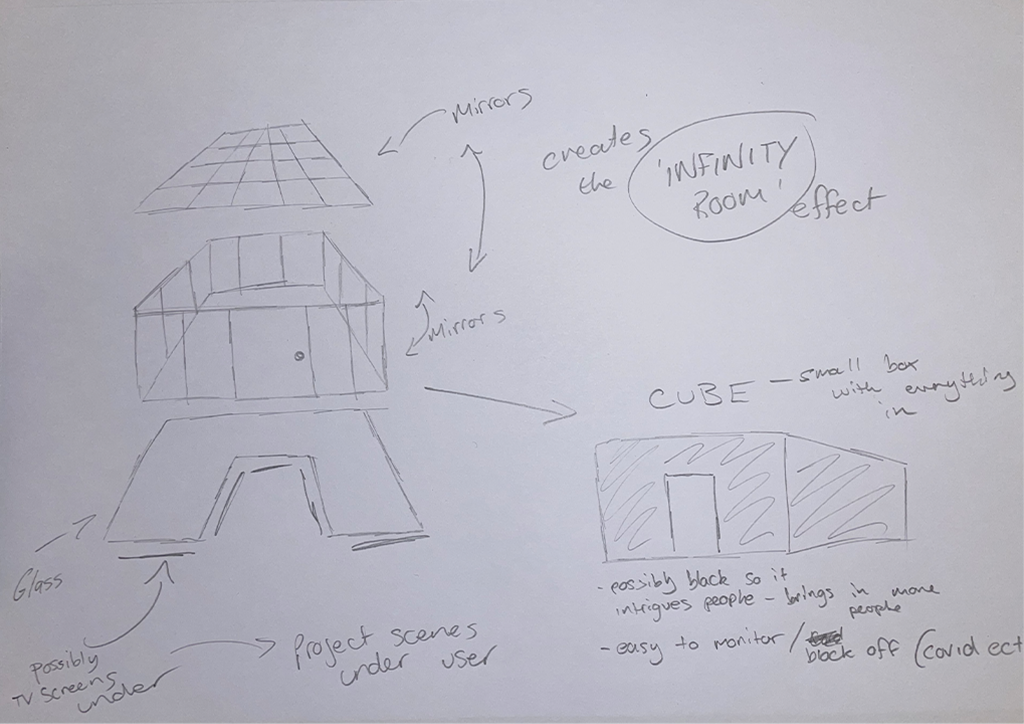 Mirrors
creates
the
'INFINITY
ROOM'
effect
Mirrors
CUBE - small box
with everything
in
Glass
possibly
TV screens
under
Project scenes
under user
- possibly black so it
intrigues people - brings in more
people
- easy to monitor / block off (covid ect